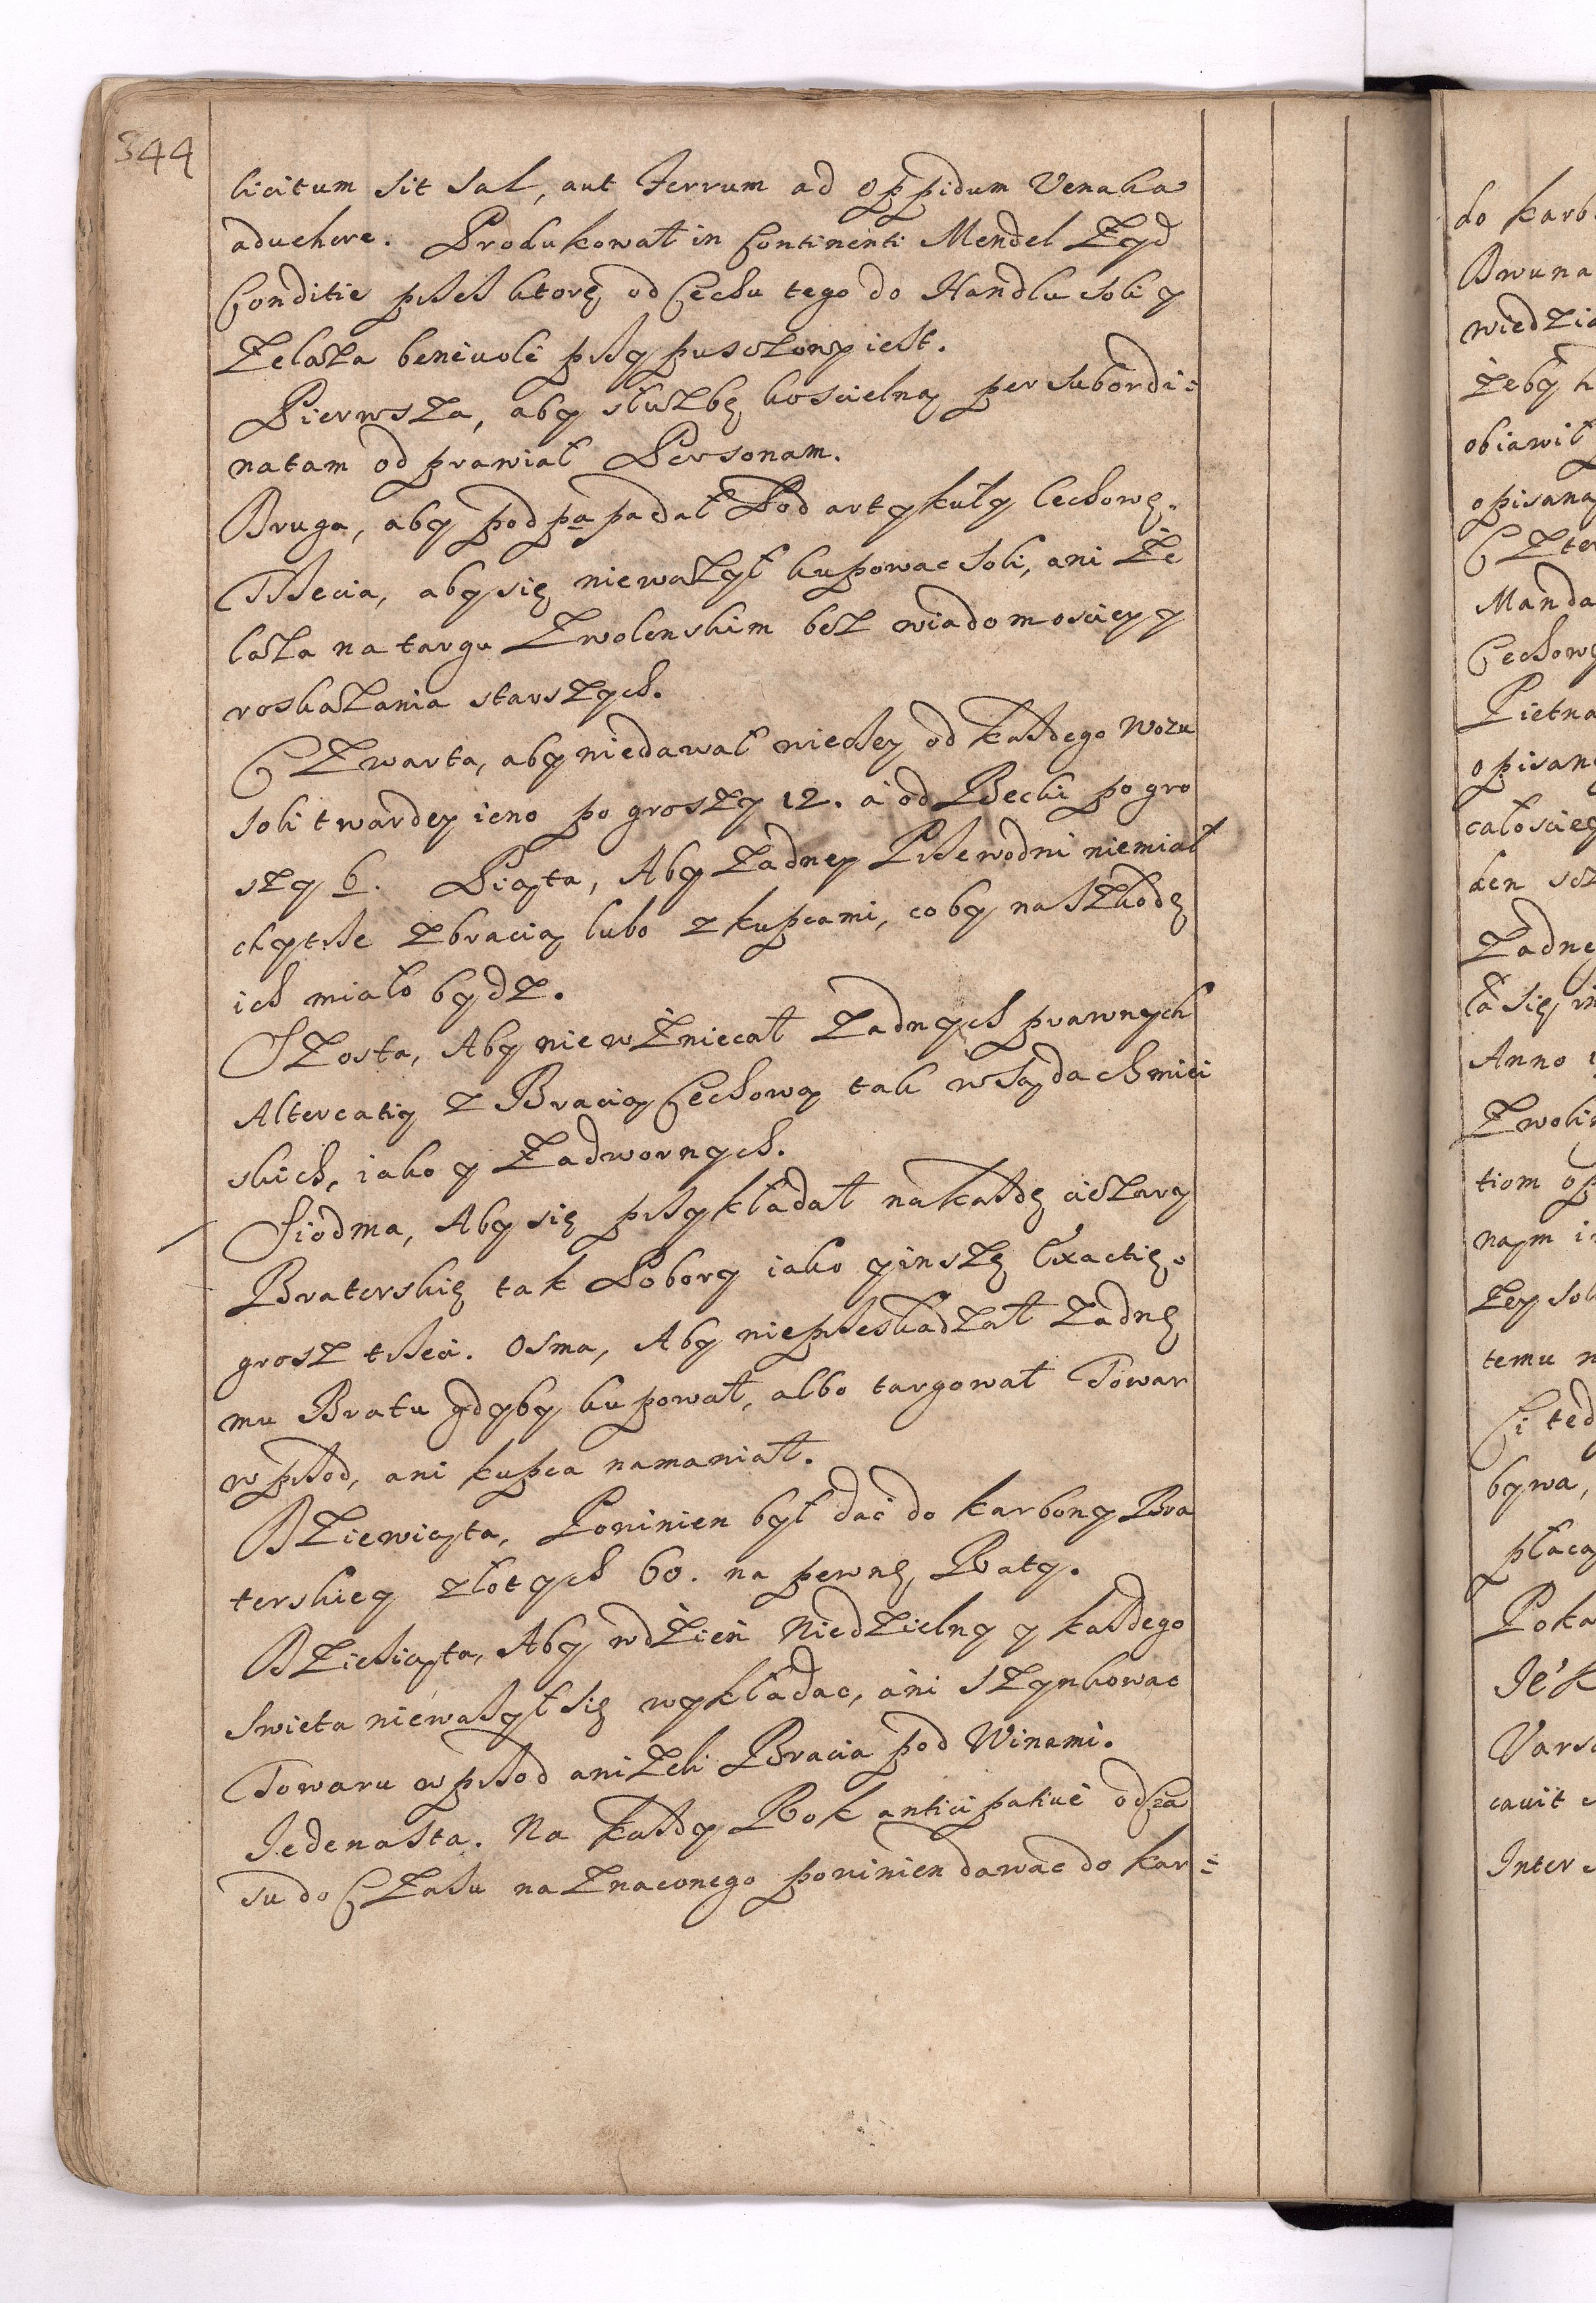 344
licitum sit sal, aut Ferrum ad oppidum Venalia
aduehere. Produkował in Continenti Mendel Zyd
Conditie przez ktorę od Cechu tego do Handlu soli y
Zelaza beneuole przypuszczony iest.
Pierwsza, aby słuzbę koscielną per subordi=
natam odprawiał Personam.
Druga, aby podpapadał Pod artykuły Cechowę.
Trzecia, aby się niewazył kupowac soli, ani Ze
laza na targu Zwolenskim bez wiadomosciey y
roskazania starszych.
Czwarta, aby niedawał wiecey od kazdego wozu
soli twardey ieno po groszy 12. á od Becki po gro
szy 6. Piąta, Aby zadney Przewodni niemiał
chytrze z bracią lubo z kupcami, coby na szkodę
ich miało bydz.
Szosta, Aby niewzniecał zadnych prawnych
Altercatiy z Bracią Cechową tak w sądach miei
skich, iako y Zadwornych.
Siodma, Aby się przykładał na kazdę ciezary
Braterskię tak Pobory iako y inszę Exactię.
grosz trzeci. Osma, Aby nieprzeskadzał zadnę
mu Bratu gdyby kupował, albo targował Towar
wprzod, ani kupca namaniał.
Dziewiąta, Powinien był dać do karbony Bra
terskiey złotych 60. na pewnę Raty.
Dziesiąta, Aby w dzień Niedzielny y kazdego
swieta niewazył się wykładac, ani szynkowac
Towaru wprzod anizeli Bracia pod Winami.
Jedenasta. Na kazdy Rok anticipatiué od cza
su do Czasu naznaconego powinien dawac do kar=
do karb
Dwuna
wiedzia
zeby
obiawił
opisaną
Czter
Manda
Cechow
Pietna
opisan
całosciey
den
Zadne
ła się
Anno
Zwoli
tiom
nąm
zey sol
temu
Ci ted
bywa,
płacą
Poka
Varso
cauit
Inter